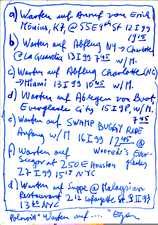 a) Warten auf Anruf von Erich
Mönius, KZ, @ SSE 9th St 12 I 99
19 15
b) Warten auf Abflug NY → Charlotte
@ La Guardia 13 I 99 7 45 w/M.
c) Warten auf Abflug Charlotte (NC)
→ Miami 13 I 99 10 45 w/M.
d) Warten auf Ablegen von Boot
Everglades City 15 I 99 w/M.
e) Warten auf SWAMP BUGGY RIDE
Anfang w/M. 16 I 99 17 45 @
f) Warten auf Wooten's Ever-
glades
Sänger at 250 E Houston
27 I 99 15 17 NYC
d) Warten auf Suppe @ Malaysian
Restaurant 212 Lafayette St 9 II 99
13 20 NYC
"Warten auf ...."